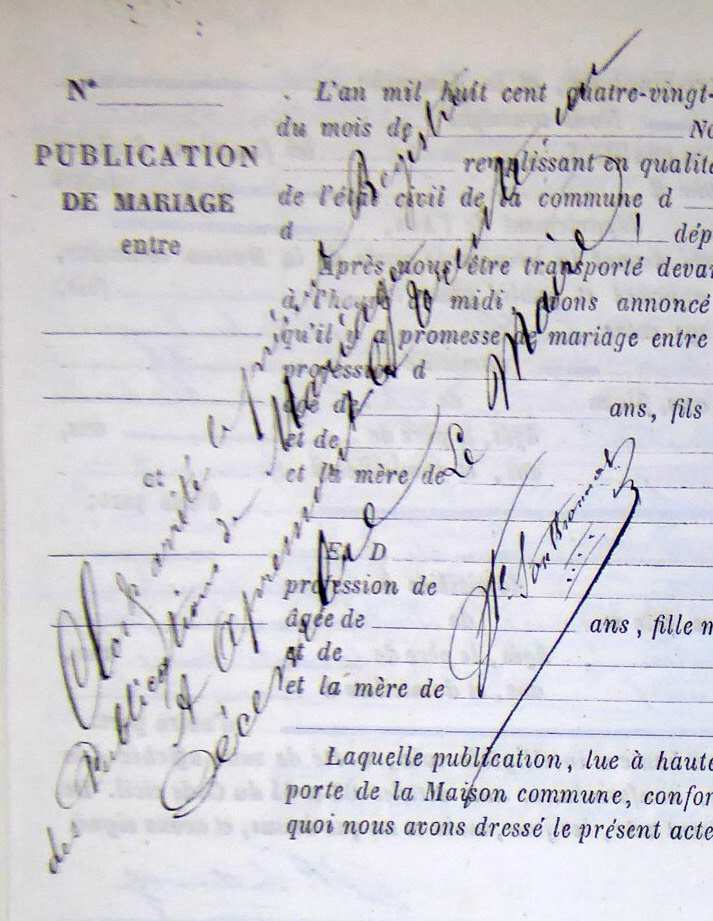 N°
PUBLICATION
DE MARIAGE
entre
et
L'an mil huit cent quatre-vingt-
du mois de No
remplissant en qualité
de l'état civil de la commune d
d dép
Après nous être transporté devan
à l'heure de midi, avons annoncé
qu'il y a promesse de mariage entre
profession d
âgé de ans, fils
et de
et la mère de
ET D
profession de
âgée de ans, fille m
et de
et la mère de
Laquelle publication, lue à haute
porte de la Maison commune, confor
quoi nous avons dressé le présent acte
Clos, arrêté le Registre
des Publications de Mariage
Décembre
Le Maire